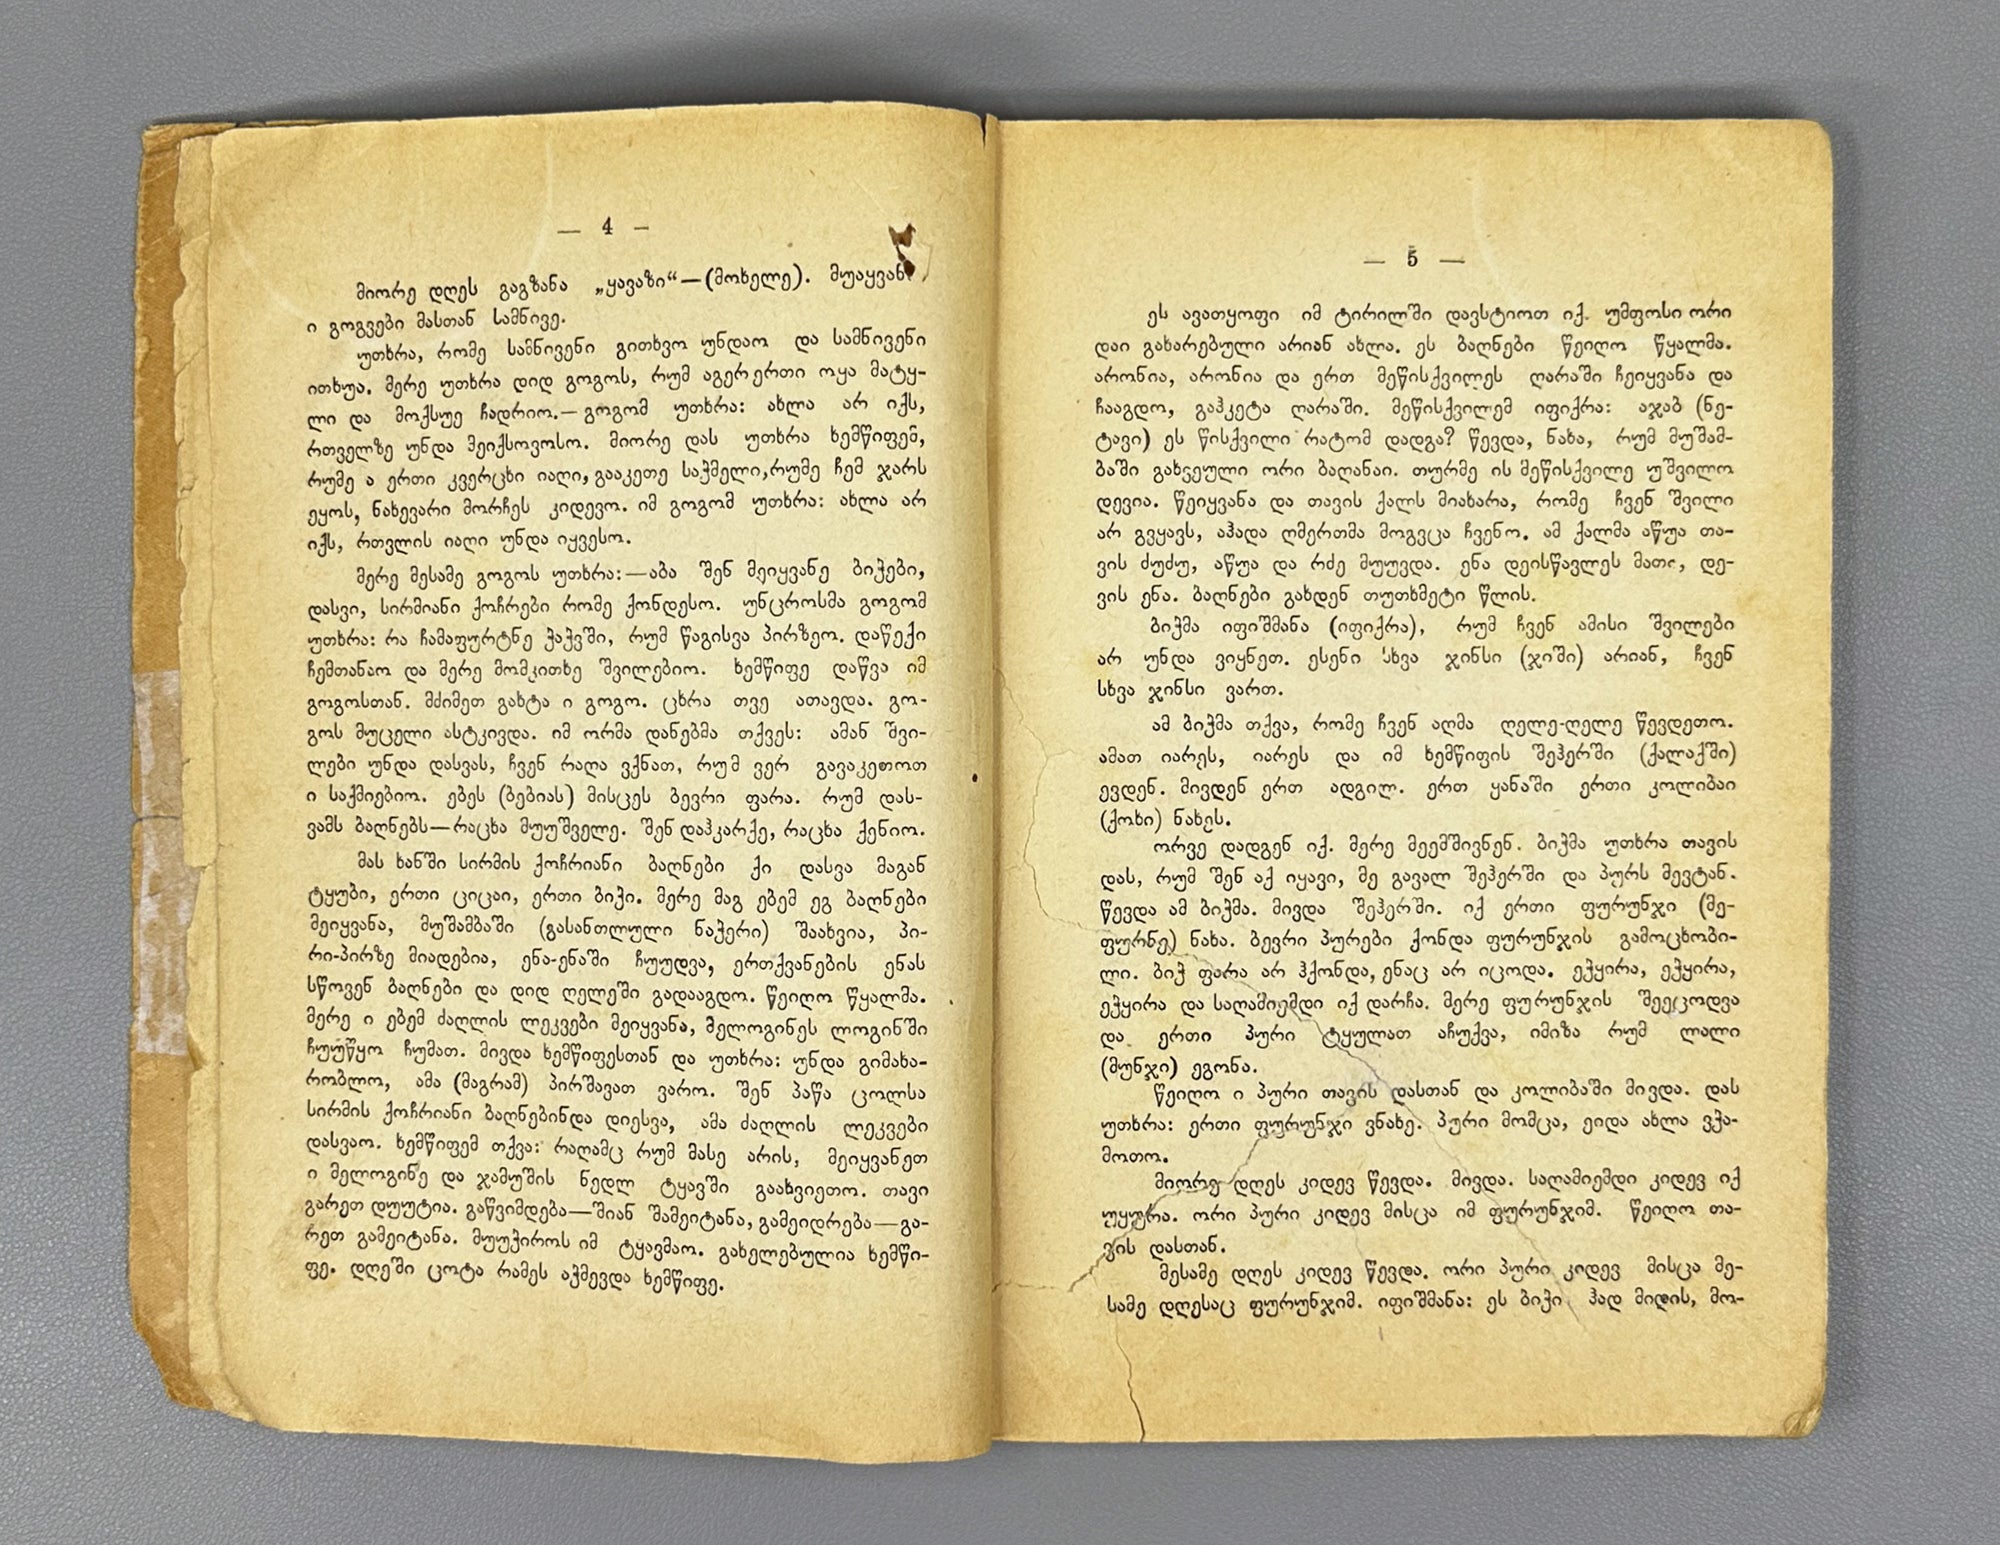 — 4 —
მიორე დღეს გაგზანა „ყავაზი“—(მოხელე). მუაყვან
ი გოგვები მასთან სამნივე.
უთხრა, რომე სამნივენი გითხვო უნდაო და სამნივენი
ითხუა. მერე უთხრა დიდ გოგოს, რუმ აგერ ერთი ოყა მატყ-
ლი და მოქსუე ჩადრიო.—გოგომ უთხრა: ახლა არ იქს,
რთველზე უნდა მეიქსოვოსო. მიორე დას უთხრა ხემწიფემ,
რუმე ა ერთი კვერცხი იაღი, გააკეთე საჭმელი, რუმე ჩემ ჯარს
ეყოს, ნახევარი მორჩეს კიდევო. იმ გოგომ უთხრა: ახლა არ
იქს, რთვლის იაღი უნდა იყვესო.
მერე მესამე გოგოს უთხრა:—აბა შენ მეიყვანე ბიჭები,
დასვი, სირმიანი ქოჩრები რომე ქონდესო. უნცროსმა გოგომ
უთხრა: რა ჩამაფურტნე ჭაჭვში, რუმ წაგისვა პირზეო. დაწექი
ჩემთანაო და მერე მომკითხე შვილებიო. ხემწიფე დაწვა იმ
გოგოსთან. მძიმეთ გახტა ი გოგო. ცხრა თვე ათავდა. გო-
გოს მუცელი ასტკივდა. იმ ორმა დანებმა თქვეს: ამან შვი-
ლები უნდა დასვას, ჩვენ რაღა ვქნათ, რუმ ვერ გავაკეთოთ
ი საქმიებიო. ებეს (ბებიას) მისცეს ბევრი ფარა. რუმ დას-
ვამს ბაღნებს—რაცხა მუუშველე. შენ დაჰკარქე, რაცხა ქენიო.
მას ხანში სირმის ქოჩრიანი ბაღნები ქი დასვა მაგან
ტყუბი, ერთი ციცაი, ერთი ბიჭი. მერე მაგ ებემ ეგ ბაღნები
მეიყვანა, მუშამბაში (გასანთლული ნაჭერი) შაახვია, პი-
რი-პირზე მიადებია, ენა-ენაში ჩუუდვა, ერთქვანების ენას
სწოვენ ბაღნები და დიდ ღელეში გადააგდო. წეიღო წყალმა.
მერე ი ებემ ძაღლის ლეკვები მეიყვანა, მელოგინეს ლოგინში
ჩუუწყო ჩუმათ. მივდა ხემწიფესთან და უთხრა: უნდა გიმახა-
რობლო, ამა (მაგრამ) პირშავათ ვარო. შენ პაწა ცოლსა
სირმის ქოჩრიანი ბაღნებინდა დიესვა, ამა ძაღლის ლეკვები
დასვაო. ხემწიფემ თქვა: რაღამც რუმ მასე არის, მეიყვანეთ
ი მელოგინე და ჯამუშის ნედლ ტყავში გაახვიეთო. თავი
გარეთ დუუტია. გაწვიმდება—შიან შამეიტანა, გამეიდრება—გა-
რეთ გამეიტანა. მუუჭიროს იმ ტყავმაო. გახელებულია ხემწი-
ფე. დღეში ცოტა რამეს აჭმევდა ხემწიფე.
— 5 —
ეს ავათყოფი იმ ტირილში დავსტიოთ იქ. უმფოსი ორი
დაი გახარებული არიან ახლა. ეს ბაღნები წეიღო წყალმა.
არონია, არონია და ერთ მეწისქვილეს ღარაში ჩეიყვანა და
ჩააგდო, გაჰკეტა ღარაში. მეწისქვილემ იფიქრა: აჯაბ (ნე-
ტავი) ეს წისქვილი რატომ დადგა? წევდა, ნახა, რუმ მუშამ-
ბაში გახვეული ორი ბაღანაი. თურმე ის მეწისქვილე უშვილო
დევია. წეიყვანა და თავის ქალს მიახარა, რომე ჩვენ შვილი
არ გვყავს, აჰადა ღმერთმა მოგვცა ჩვენო. ამ ქალმა აწუა თა-
ვის ძუძუ, აწუა და რძე მუუვდა. ენა დეისწავლეს მათი, დე-
ვის ენა. ბაღნები გახდენ თუთხმეტი წლის.
ბიჭმა იფიშმანა (იფიქრა), რუმ ჩვენ ამისი შვილები
არ უნდა ვიყნეთ. ესენი სხვა ჯინსი (ჯიში) არიან, ჩვენ
სხვა ჯინსი ვართ.
ამ ბიჭმა თქვა, რომე ჩვენ აღმა ღელე-ღელე წევდეთო.
ამათ იარეს, იარეს და იმ ხემწიფის შეჰერში (ქალაქში)
ევდენ. მივდენ ერთ ადგილ. ერთ ყანაში ერთი კოლიბაი
(ქოხი) ნახეს.
ორვე დადგენ იქ. მერე მეემშივნენ. ბიჭმა უთხრა თავის
დას, რუმ შენ აქ იყავი, მე გავალ შეჰერში და პურს მევტან.
წევდა ამ ბიჭმა. მივდა შეჰერში. იქ ერთი ფურუნჯი (მე-
ფურნე) ნახა. ბევრი პურები ქონდა ფურუნჯის გამოცხობი-
ლი. ბიჭ ფარა არ ჰქონდა, ენაც არ იცოდა. ეჭყირა, ეჭყირა,
ეჭყირა და საღამიემდი იქ დარჩა. მერე ფურუნჯის შეეცოდვა
და ერთი პური ტყულათ აჩუქვა, იმიზა რუმ ლალი
(მუნჯი) ეგონა.
წეიღო ი პური თავის დასთან და კოლიბაში მივდა. დას
უთხრა: ერთი ფურუნჯი ვნახე. პური მომცა, ეიდა ახლა ვჭა-
მოთო.
მიორე დღეს კიდევ წევდა. მივდა. საღამიემდი კიდევ იქ
უყურა. ორი პური კიდევ მისცა იმ ფურუნჯიმ. წეიღო თა-
ვის დასთან.
მესამე დღეს კიდევ წევდა. ორი პური კიდევ მისცა მე-
სამე დღესაც ფურუნჯიმ. იფიშმანა: ეს ბიჭი ჰად მიდის, მო-